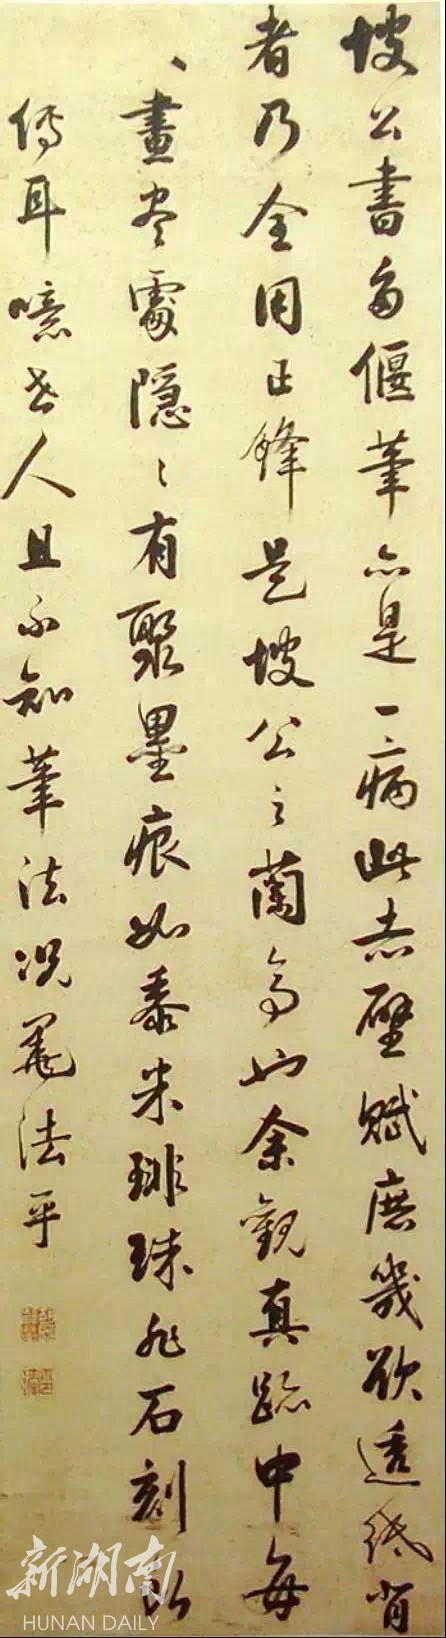 坡公書多偃筆亦是一病此赤壁賦庶幾欲透紙背
者乃全用正鋒是坡公之蘭亭也余觀真跡中每
、畫尽處隱〻有聚墨痕如黍米琲珠非石刻所
傳耳噫世人且不知筆法況墨法乎
新湖南
HUNAN DAILY